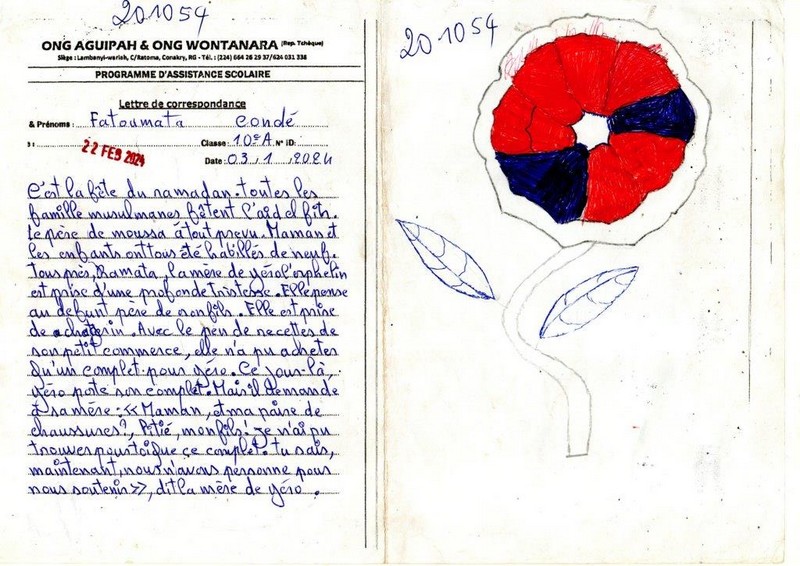 201054
ONG AGUIPAH & ONG WONTANARA (Rep. Tchèque)
Siège : Lambanyi-wariah, C/Ratoma, Conakry, RG - Tél. : (224) 664 26 29 37/624 031 338
PROGRAMME D'ASSISTANCE SCOLAIRE
Lettre de correspondance
& Prénoms : Fatoumata condé
Classe : 10eA. N° ID:
22 FEB 2024
Date : 03 / 1 / 2024
C'est la fête du ramadan. toutes les
famille musulmanes fêtent l'aïd el fitr.
Le père de moussa à tout prevu. Maman et
les enfants ont tous été habillés de neuf.
Tous près, Ramata, la mère de yéro l'orphelin
est prise d'une profonde tristesse. Elle pense
au defunt père de son fils. Elle est prise
de chagrin. Avec le peu de recettes de
son petit commerce, elle n'a pu acheter
Qu'un complet pour yéro. Ce jour-là,
yéro porte son complet. Mais il demande
à sa mère : « Maman, et ma paire de
chaussures?, Pitié, mon fils! je n'ai pu
trouver pour toi que ce complet. tu sais,
maintenant, nous n'avons personne pour
nous soutenir», dit la mère de yéro.
201054